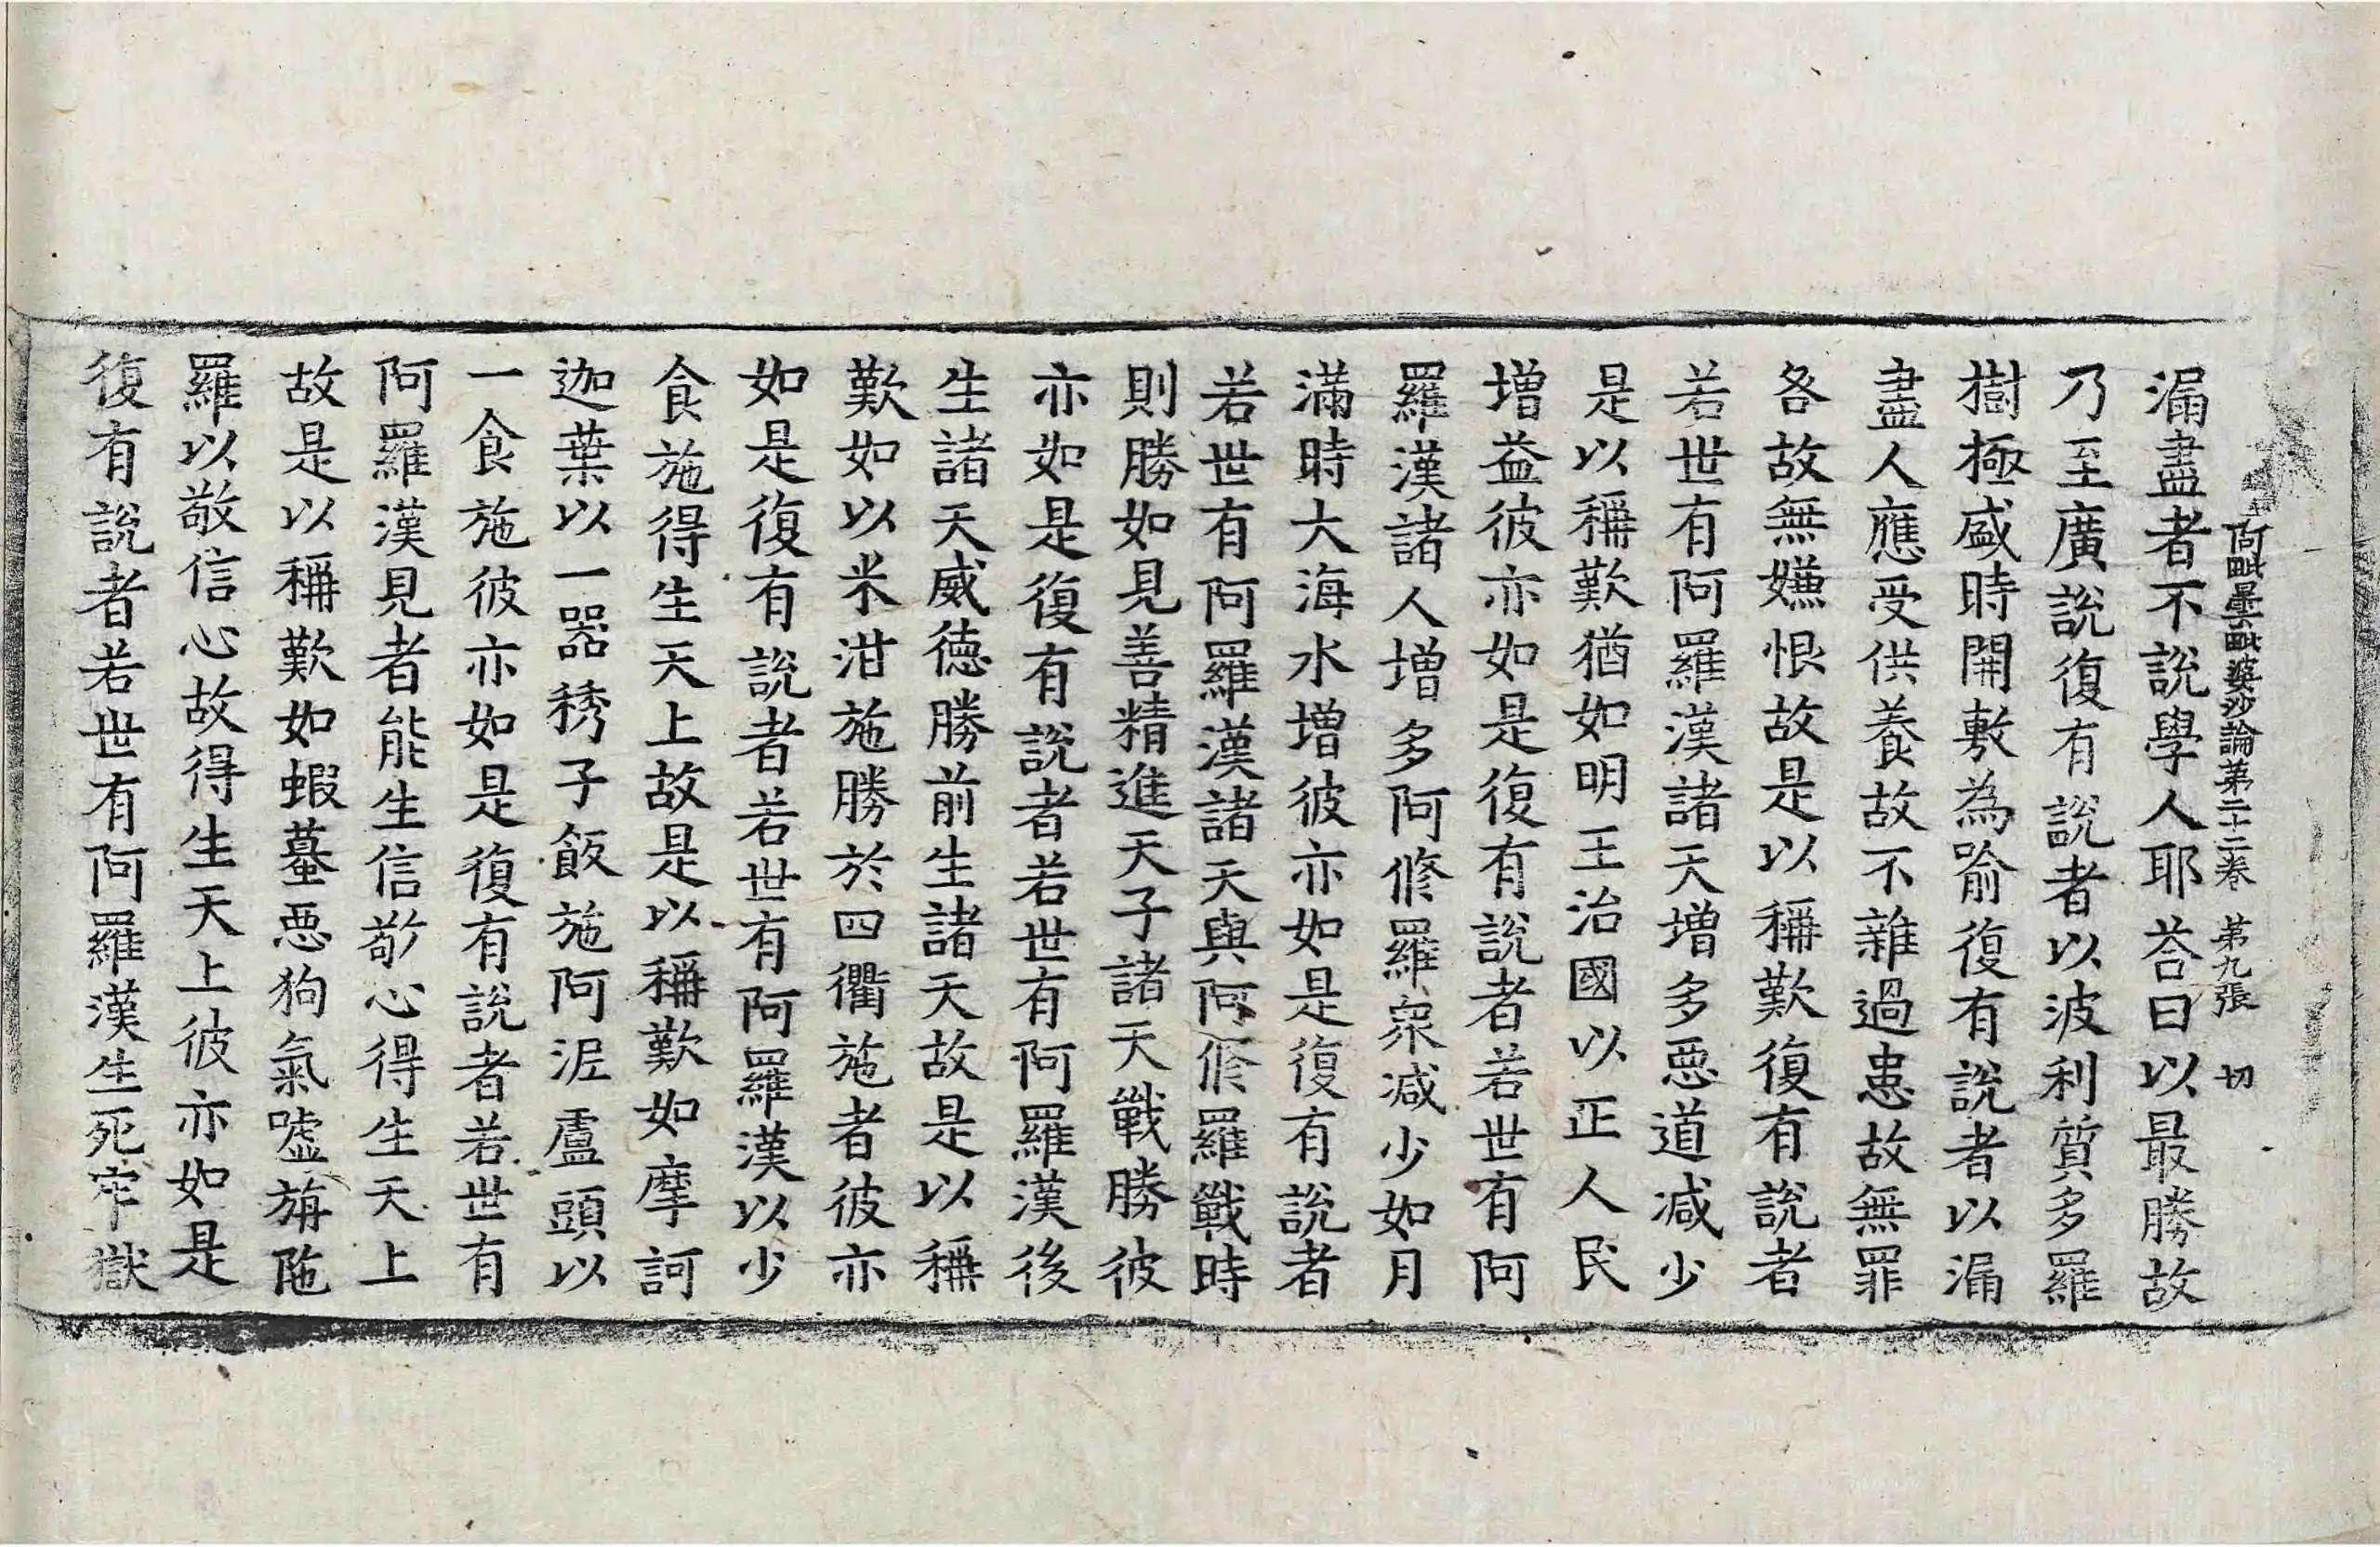 阿毗曇毗婆沙論第二十二卷 第九張 切
漏盡者不說學人耶荅曰以最勝故
乃至廣說復有說者以波利質多羅
樹極盛時開敷為喻復有說者以漏
盡人應受供養故不雜過患故無罪
咎故無嫌恨故是以稱歎復有說者
若世有阿羅漢諸天增多惡道減少
是以稱歎猶如明王治國以正人民
增益彼亦如是復有說者若世有阿
羅漢諸人增多阿修羅衆減少如月
滿時大海水增彼亦如是復有說者
若世有阿羅漢諸天與阿修羅戰時
則勝如見善精進天子諸天戰勝彼
亦如是復有說者若世有阿羅漢後
生諸天威德勝前生諸天故是以稱
歎如以米泔施勝於四衢施者彼亦
如是復有說者若世有阿羅漢以少
食施得生天上故是以稱歎如摩訶
迦葉以一器稊子飯施阿泥盧頭以
一食施彼亦如是復有說者若世有
阿羅漢見者能生信敬心得生天上
故是以稱歎如蝦蟇惡狗氣噓旃陁
羅以敬信心故得生天上彼亦如是
復有說者若世有阿羅漢生死牢獄